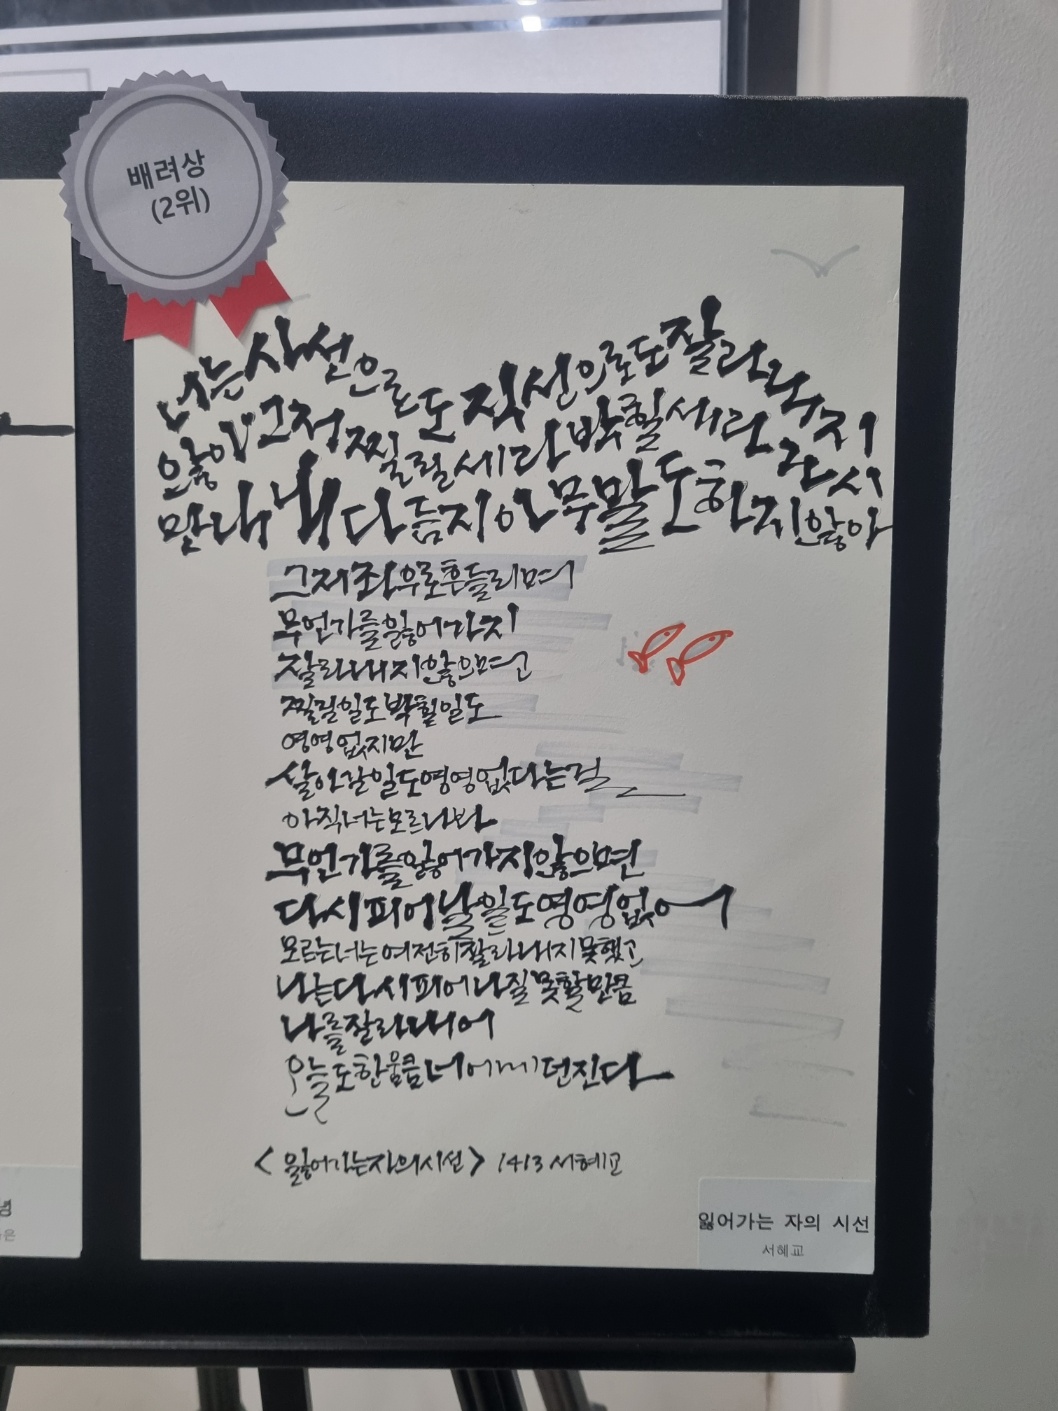 배려상
(2위)
너는 사선으로도 직선으로도 잘라내지
않아 그저 찔릴세라 박힐세라 다시
만나 내 다듬지 아무 말도 하지 않아
그저 좌우로 흔들리며
무언가를 잃어가지
잘라내지 않으면
찔릴 일도 박힐 일도
영영 없지만
살아갈 일도 영영 없다는 걸
아직 너는 모르나 봐
무언가를 잃어가지 않으면
다시 피어날 일도 영영 없어
모르는 너는 여전히 잘라내지 못했고
나는 다시 피어나질 못할 만큼
나를 잘라내어
오늘도 한 움큼 너에게 던진다
<잃어가는 자의 시선> 1413 서혜교
잃어가는 자의 시선
서혜교